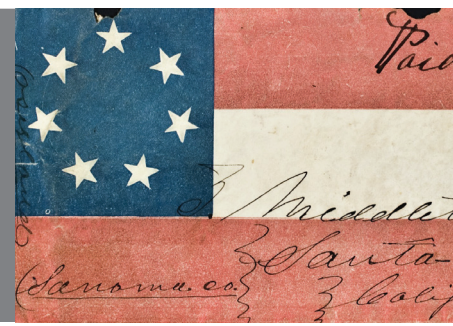 Paid
Middlet
Santa-
(Sonoma. co.
Calif